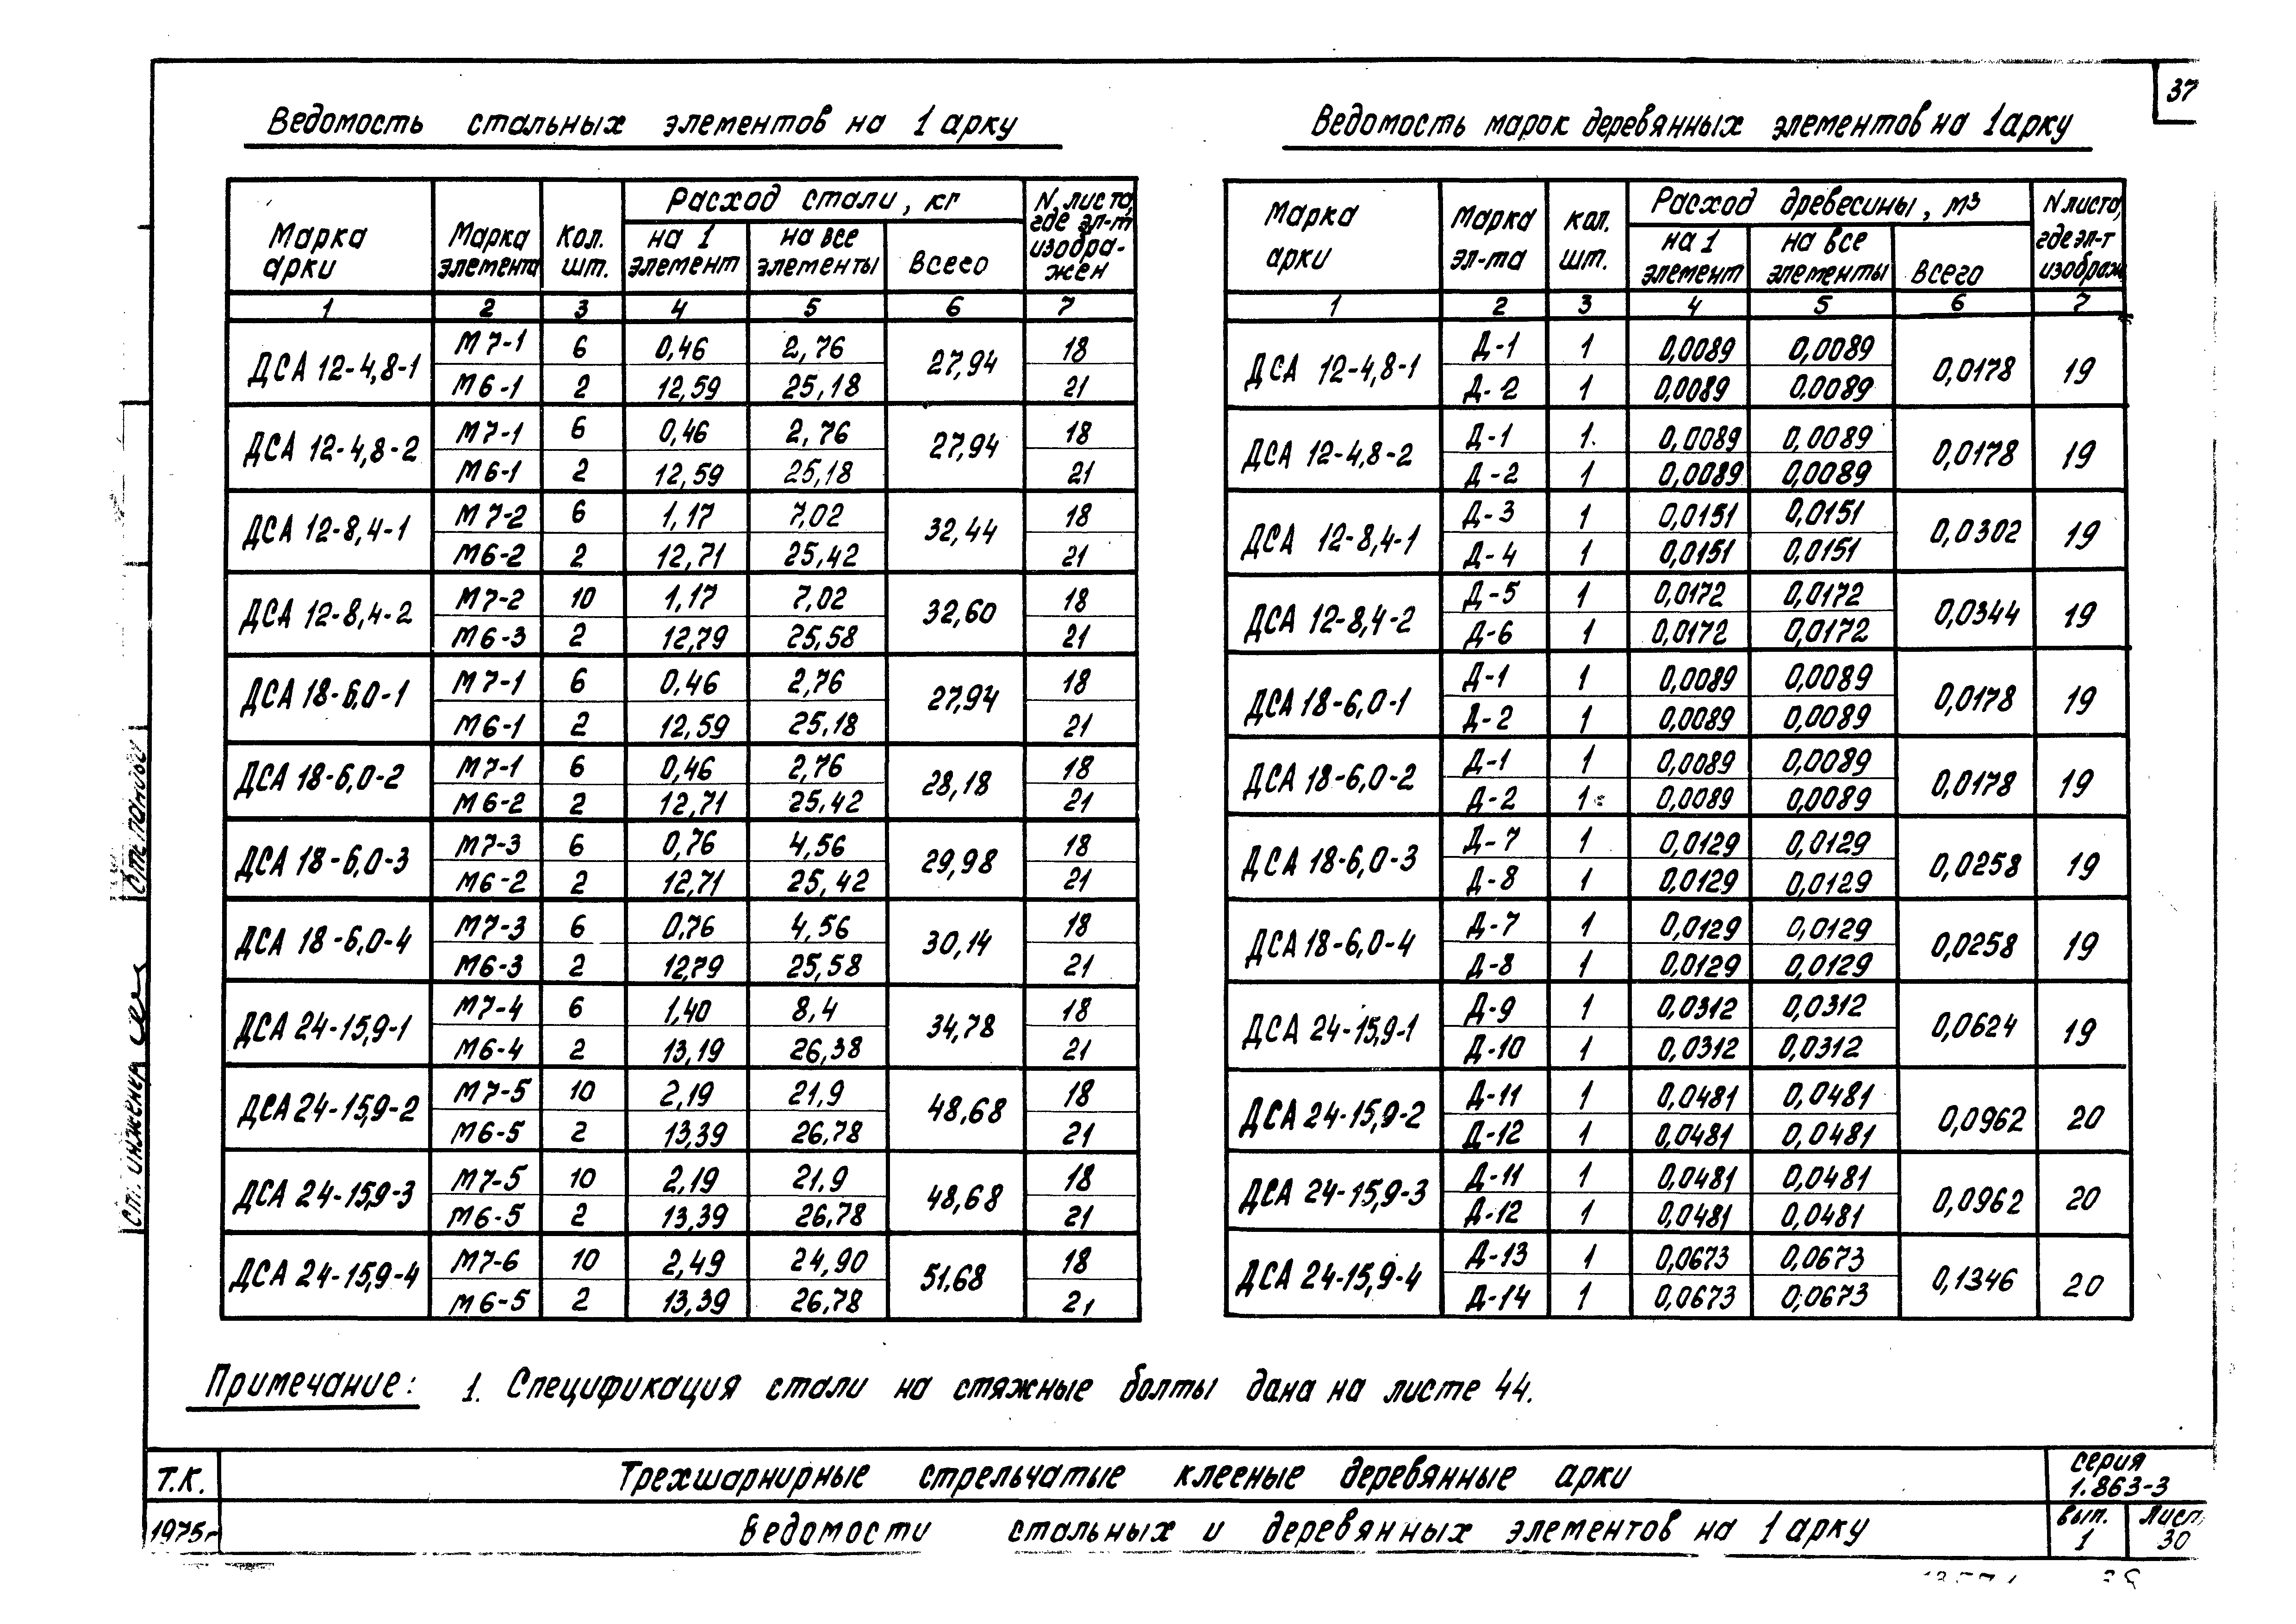 37
Ведомость стальных элементов на 1 арку
Марка арки | Марка элемента | Кол. шт. | Расход стали, кг | N листа, где эл-т изображен
на 1 элемент | на все элементы | Всего
1 | 2 | 3 | 4 | 5 | 6 | 7
ДСА 12-4,8-1 | М7-1 | 6 | 0,46 | 2,76 | 27,94 | 18
М6-1 | 2 | 12,59 | 25,18 | 21
ДСА 12-4,8-2 | М7-1 | 6 | 0,46 | 2,76 | 27,94 | 18
М6-1 | 2 | 12,59 | 25,18 | 21
ДСА 12-8,4-1 | М7-2 | 6 | 1,17 | 7,02 | 32,44 | 18
М6-2 | 2 | 12,71 | 25,42 | 21
ДСА 12-8,4-2 | М7-2 | 10 | 1,17 | 7,02 | 32,60 | 18
М6-3 | 2 | 12,79 | 25,58 | 21
ДСА 18-6,0-1 | М7-1 | 6 | 0,46 | 2,76 | 27,94 | 18
М6-1 | 2 | 12,59 | 25,18 | 21
ДСА 18-6,0-2 | М7-1 | 6 | 0,46 | 2,76 | 28,18 | 18
М6-2 | 2 | 12,71 | 25,42 | 21
ДСА 18-6,0-3 | М7-3 | 6 | 0,76 | 4,56 | 29,98 | 18
М6-2 | 2 | 12,71 | 25,42 | 21
ДСА 18-6,0-4 | М7-3 | 6 | 0,76 | 4,56 | 30,14 | 18
М6-3 | 2 | 12,79 | 25,58 | 21
ДСА 24-15,9-1 | М7-4 | 6 | 1,40 | 8,4 | 34,78 | 18
М6-4 | 2 | 13,19 | 26,38 | 21
ДСА 24-15,9-2 | М7-5 | 10 | 2,19 | 21,9 | 48,68 | 18
М6-5 | 2 | 13,39 | 26,78 | 21
ДСА 24-15,9-3 | М7-5 | 10 | 2,19 | 21.9 | 48,68 | 18
М6-5 | 2 | 13,39 | 26,78 | 21
ДСА 24-15,9-4 | М7-6 | 10 | 2,49 | 24,90 | 51,68 | 18
М6-5 | 2 | 13,39 | 26,78 | 21
Ведомость марок деревянных элементов на 1 арку
Марка арки | Марка эл-та | кол. шт. | Расход древесины, м³ | N листа, где эл-т изображ
на 1 элемент | на все элементы | Всего
1 | 2 | 3 | 4 | 5 | 6 | 7
ДСА 12-4,8-1 | Д-1 | 1 | 0,0089 | 0,0089 | 0,0178 | 19
Д-2 | 1 | 0,0089 | 0,0089
ДСА 12-4,8-2 | Д-1 | 1 | 0,0089 | 0,0089 | 0,0178 | 19
Д-2 | 1 | 0,0089 | 0,0089
ДСА 12-8,4-1 | Д-3 | 1 | 0,0151 | 0,0151 | 0,0302 | 19
Д-4 | 1 | 0,0151 | 0,0151
ДСА 12-8,4-2 | Д-5 | 1 | 0,0172 | 0,0172 | 0,0344 | 19
Д-6 | 1 | 0,0172 | 0,0172
ДСА 18-6,0-1 | Д-1 | 1 | 0,0089 | 0,0089 | 0,0178 | 19
Д-2 | 1 | 0,0089 | 0,0089
ДСА 18-6,0-2 | Д-1 | 1 | 0,0089 | 0,0089 | 0,0178 | 19
Д-2 | 1 | 0,0089 | 0,0089
ДСА 18-6,0-3 | Д-7 | 1 | 0,0129 | 0,0129 | 0,0258 | 19
Д-8 | 1 | 0,0129 | 0,0129
ДСА 18-6,0-4 | Д-7 | 1 | 0,0129 | 0,0129 | 0,0258 | 19
Д-8 | 1 | 0,0129 | 0,0129
ДСА 24-15,9-1 | Д-9 | 1 | 0,0312 | 0,0312 | 0,0624 | 19
Д-10 | 1 | 0,0312 | 0,0312
ДСА 24-15,9-2 | Д-11 | 1 | 0,0481 | 0,0481 | 0,0962 | 20
Д-12 | 1 | 0,0481 | 0,0481
ДСА 24-15,9-3 | Д-11 | 1 | 0,0481 | 0,0481 | 0,0962 | 20
Д-12 | 1 | 0,0481 | 0,0481
ДСА 24-15,9-4 | Д-13 | 1 | 0,0673 | 0,0673 | 0,1346 | 20
Д-14 | 1 | 0,0673 | 0,0673
Примечание: 1. Спецификация стали на стяжные болты дана на листе 44.
Ст. инженер
Т.К. | Трехшарнирные стрельчатые клееные деревянные арки | серия 1.863-3
1975г | Ведомости стальных и деревянных элементов на 1 арку | вып. 1 | лист 30